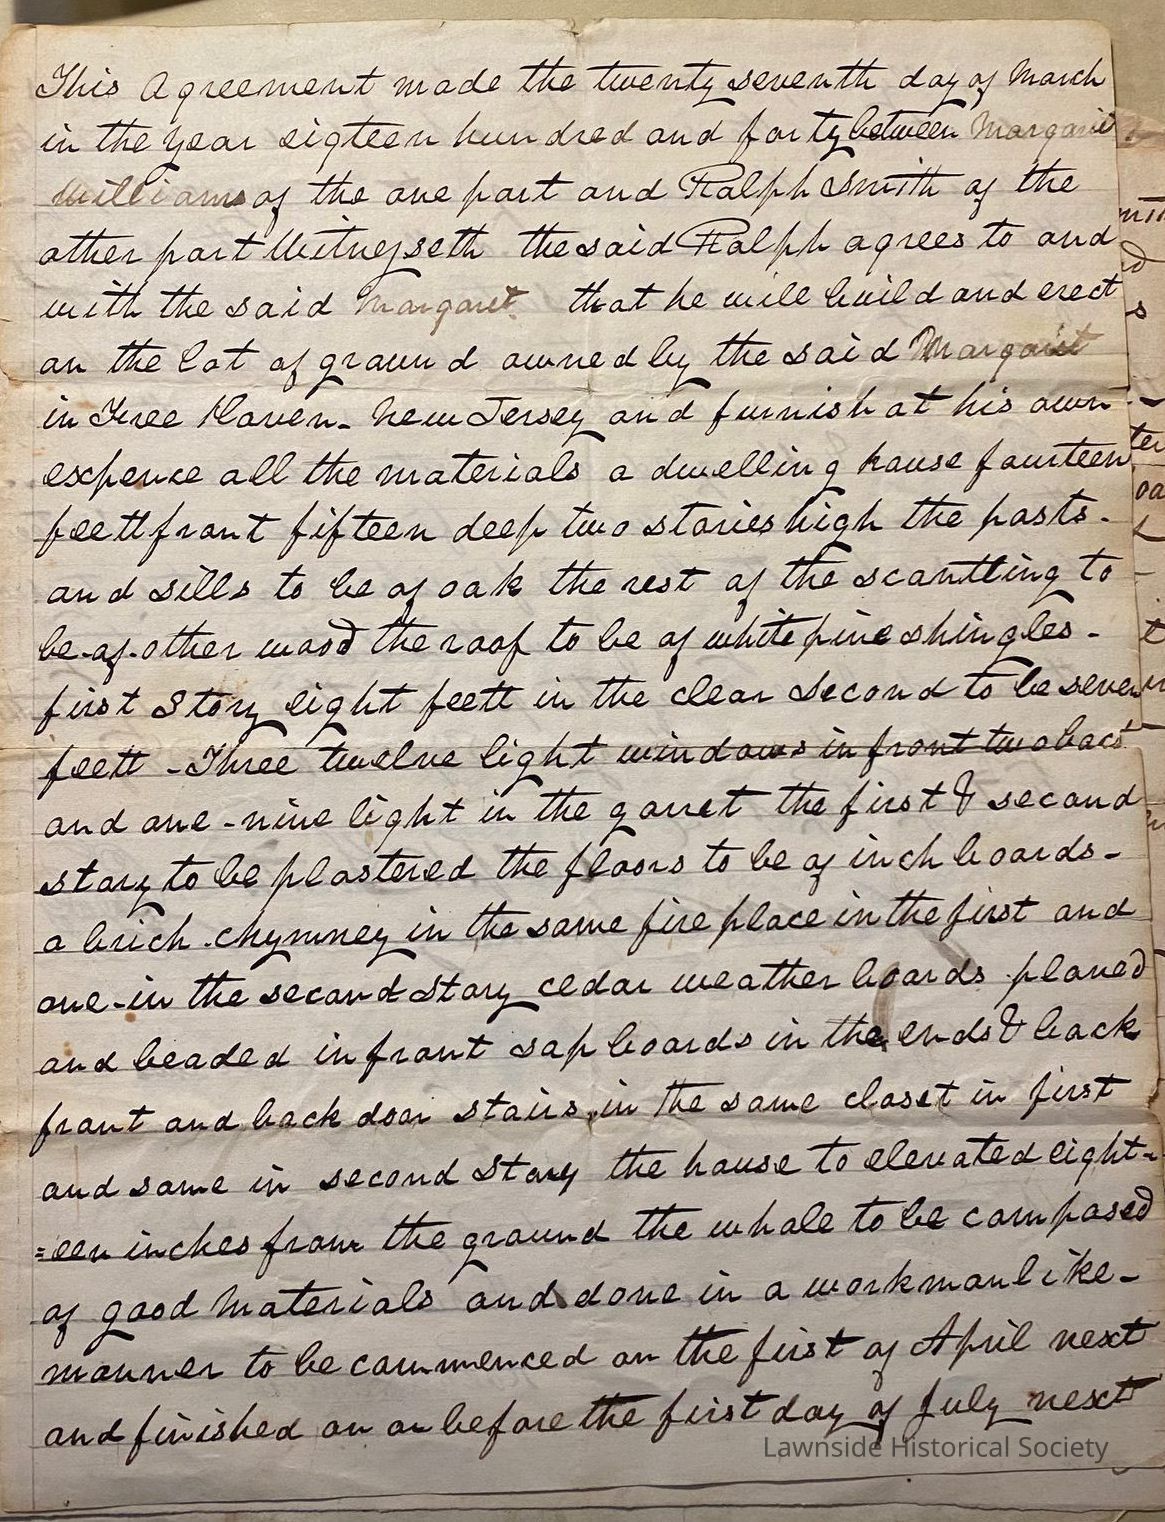 This Agreement made the twenty seventh day of March
in the year eigteen hundred and forty between Margaret
Williams of the one part and Ralph Smith of the
other part Witnesseth the said Ralph agrees to and
with the said Margaret that he will build and erect
on the lot of ground owned by the said Margaret
in Free Haven - New Jersey and furnish at his own
expence all the materials a dwelling house fourteen
feett front fifteen deep two stories high the posts -
and sills to be of oak the rest of the scantling to
be - of - other wood the roof to be of white pine shingles -
first Story eight feett in the clear Second to be seven
feett - Three twelve light windows in front two back
and one - nine light in the garret the first & second
story to be plastered the floors to be of inch boards -
a brich chymney in the same fire place in the first and
one - in the second Story cedar weather boards planed
and beaded in front sap boards in the ends & back
front and back door stairs, in the same closet in first
and same in second Story the house to elevated eight-
=een inches from the ground the whole to be composed
of good Materials and done in a workmanlike -
manner to be commenced on the first of April next
and finished on or before the first day of July next
Lawnside Historical Society